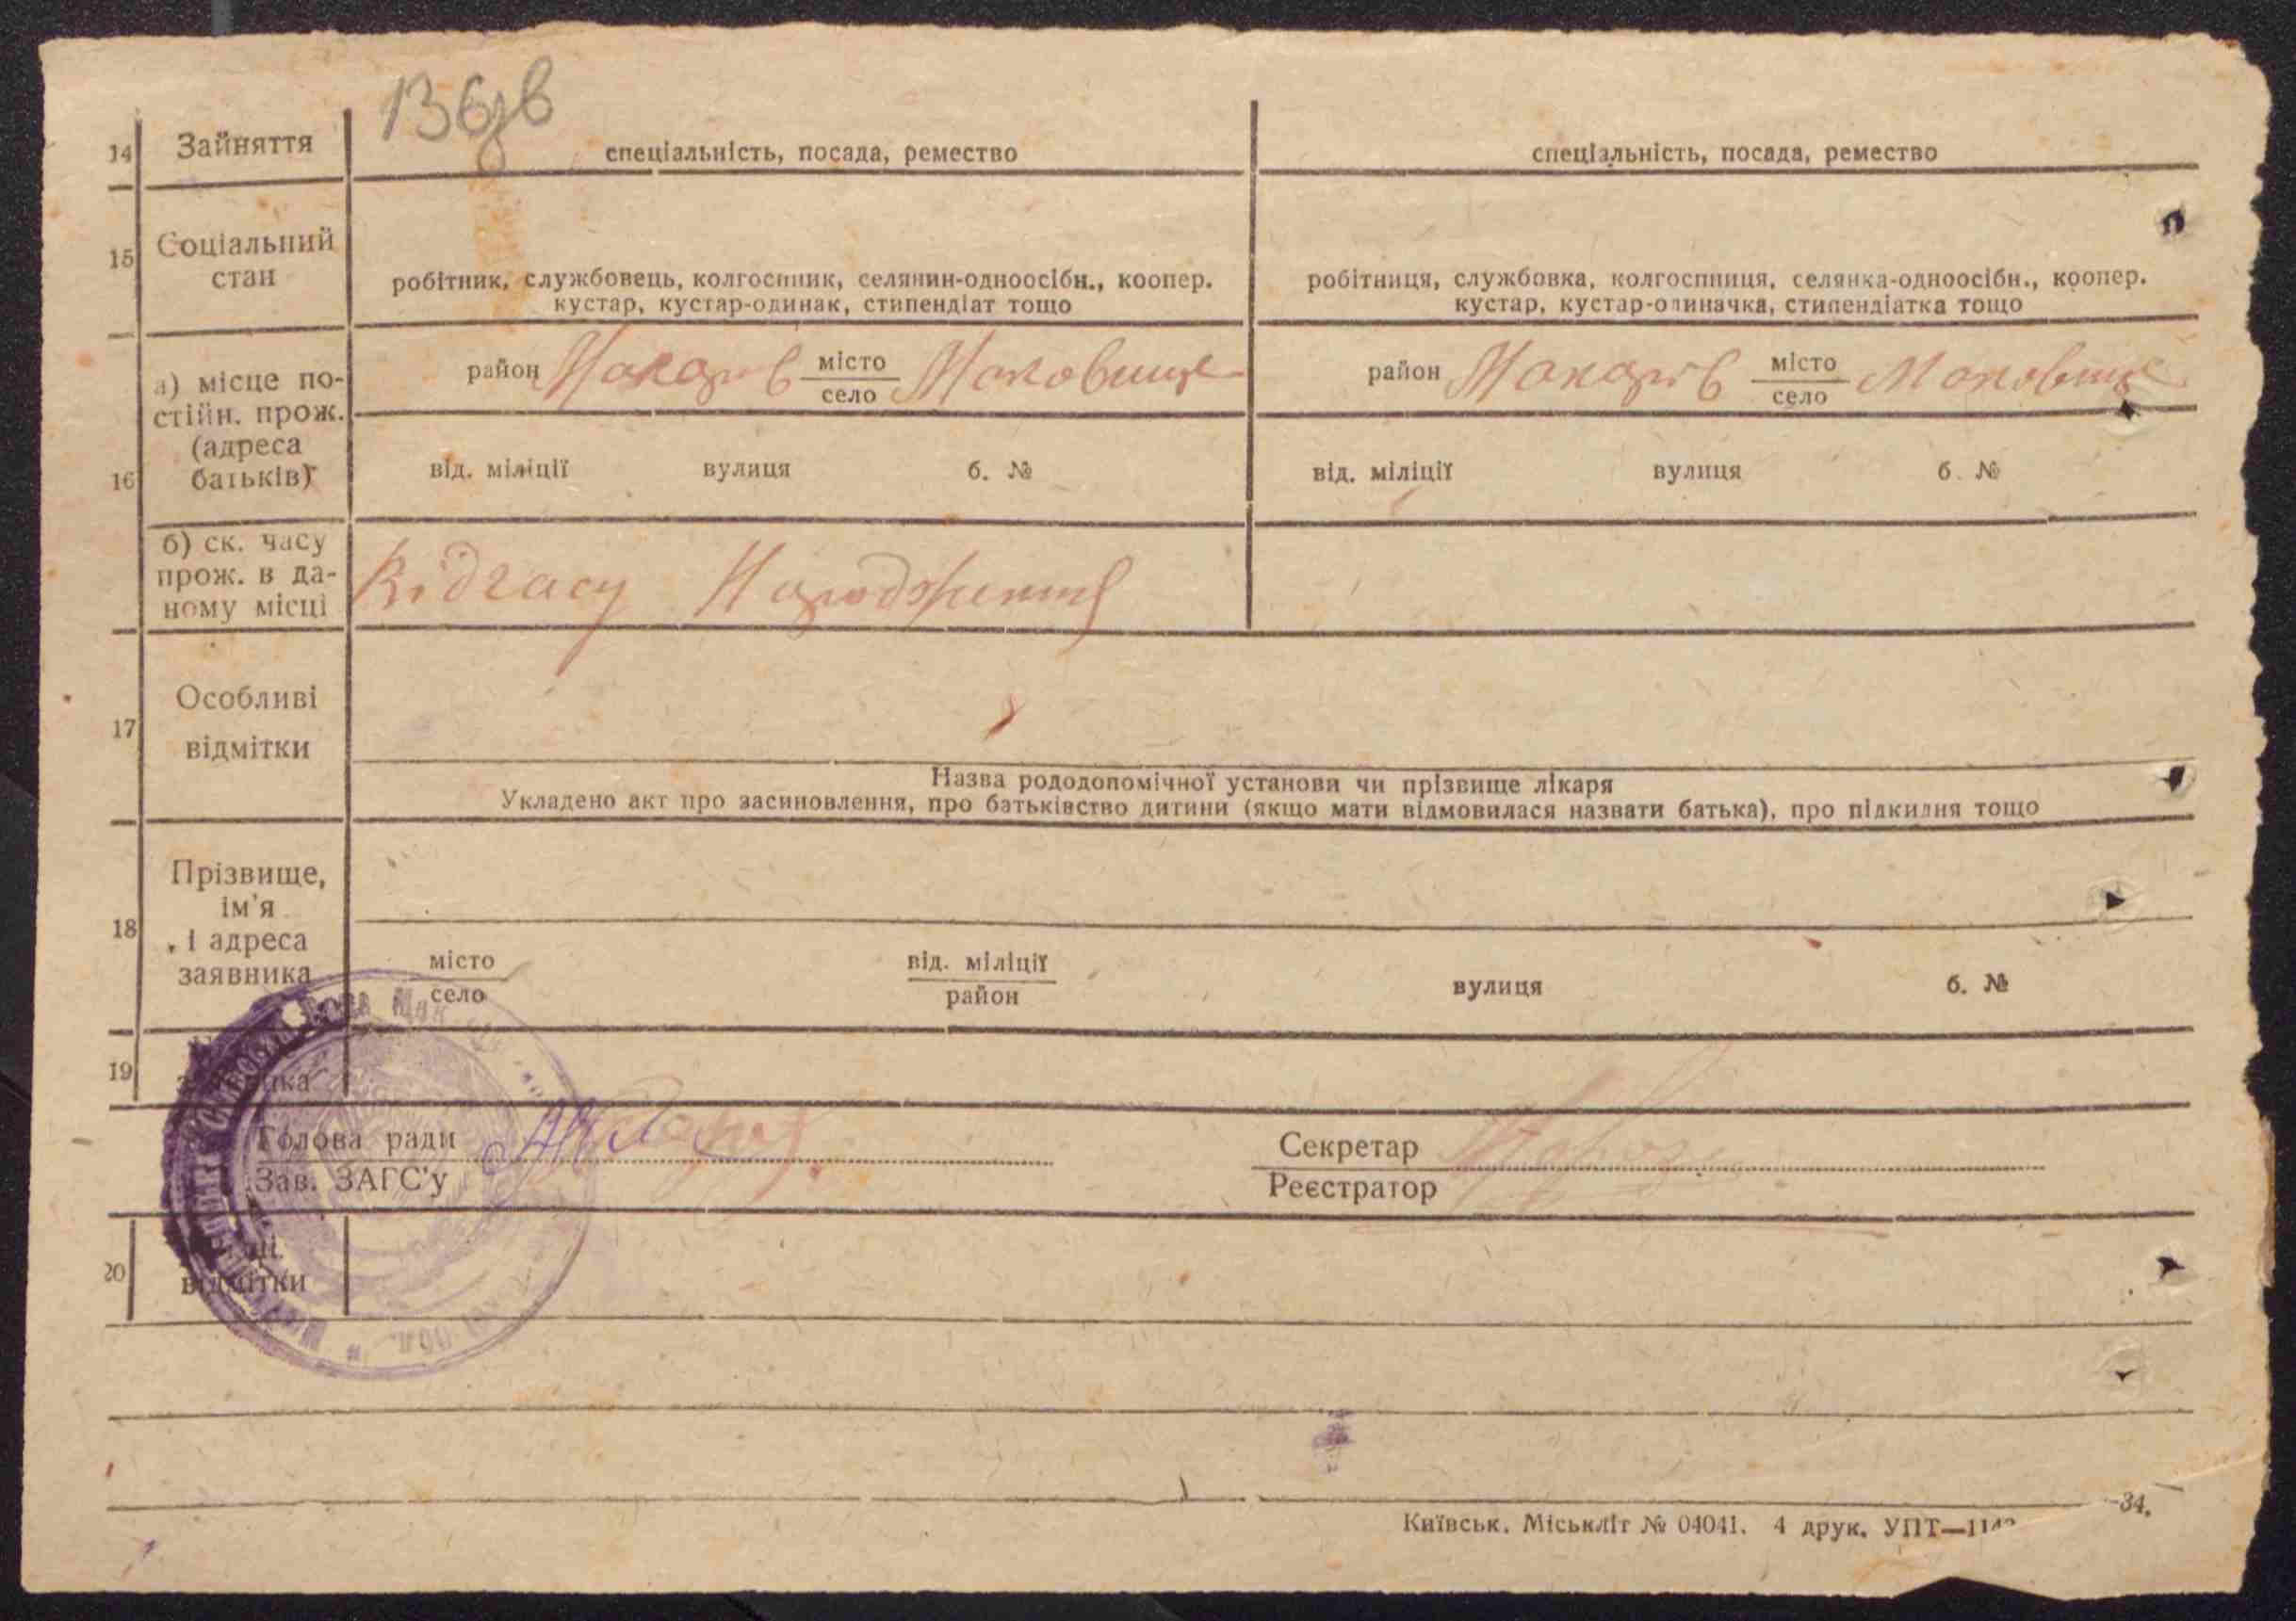 136зв
14 Зайняття спеціальність, посада, ремество спеціальність, посада, ремество
15 Соціальний
стан
робітник, службовець, колгоспник, селянин-одноосібн., коопер.
кустар, кустар-одинак, стипендіат тощо
робітниця, службовка, колгоспниця, селянка-одноосібн., коопер.
кустар, кустар-одиначка, стипендіатка тощо
16
а) місце по-
стійн. прож.
(адреса
батьків)
район Макарів місто Маковище
село
від. міліції вулиця б. №
район Макарів місто Маковище
село
від. міліції вулиця б. №
б) ск. часу
прож. в да-
ному місці
Відчасу Народження
17 Особливі
відмітки
Назва рододопомічної установи чи прізвище лікаря
Укладено акт про засиновлення, про батьківство дитини (якщо мати відмовилася назвати батька), про підкидня тощо
18
Прізвище,
ім'я
і адреса
заявника
місто
село
від. міліції
район
вулиця б. №
19
Голова ради
Зав. ЗАГС'у
Секретар
Реєстратор
20
відмітки
Київськ. Міськліт № 04041. 4 друк. УПТ—
34.